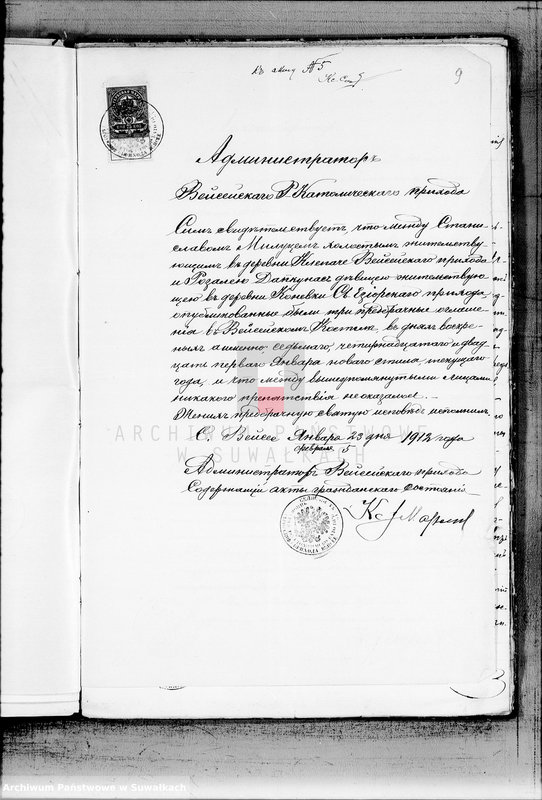 Къ акту № 5
9
Администраторъ
Вейсейскаго Р Католическаго прихода
Симъ свидѣтельствуетъ, что между Стани-
славомъ Милуцемъ холостымъ жительству-
ющимъ въ деревни Клепаче Вейсейскаго прихода
и Розалею Дайнунасъ дѣвицею жительствую-
щею въ деревни Коневки Св Езіорскаго прихода
опубликованные были три предбрачные оглаше-
нія въ Вейсейскомъ Костелѣ, въ дняхъ воскре-
сныхъ а именно: седьмаго, четырнадцатаго и двад-
цать перваго Января новаго стиля текущаго
года, и что между вышеупомянутыми лицами
никакого препятствія не оказалось.
Женихъ предбрачную святую исповѣдь исполнилъ.
С. Вейсее Января 23 дня 1912 года
февраля 5
Администраторъ Вейсейскаго прихода
Содержащій акты гражданскаго состоянія
ARCHIWUM PAŃSTWOWE
W SUWAŁKACH
Archiwum Państwowe w Suwałkach